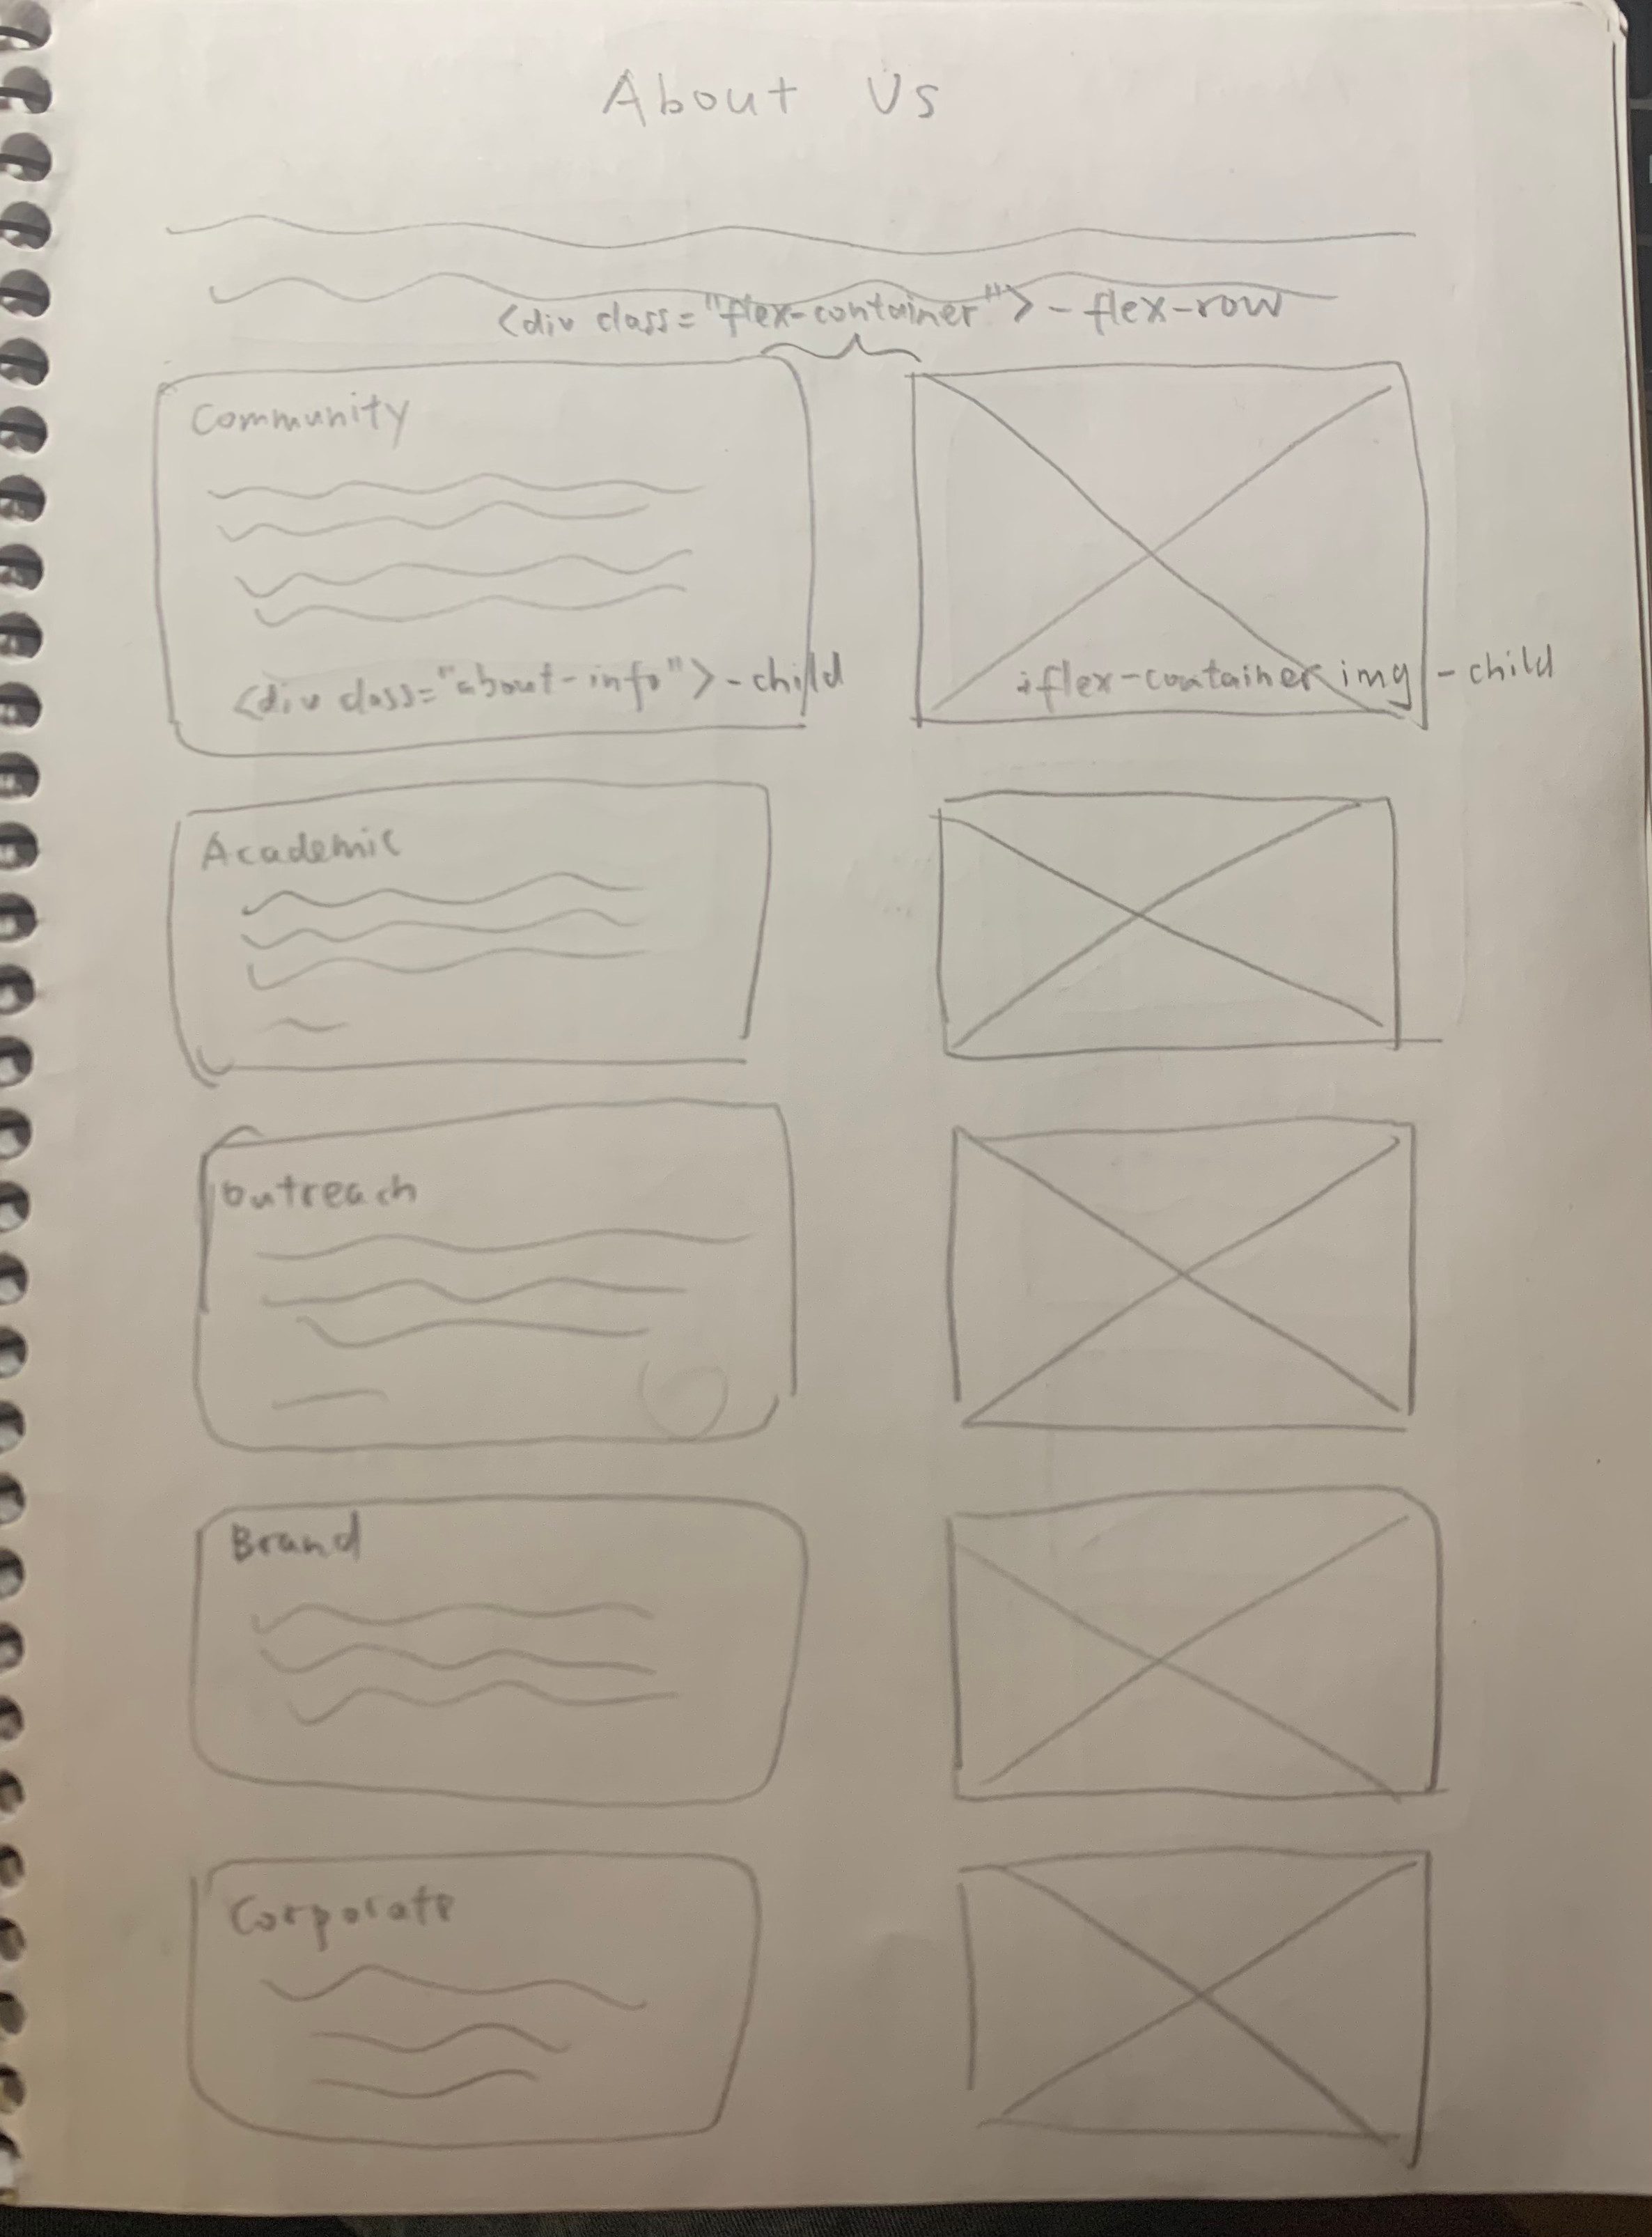 About Us
<div class="flex-container"> - flex-row
Community
<div class="about-info"> - child
flex-container img - child
Academic
Outreach
Brand
Corporate